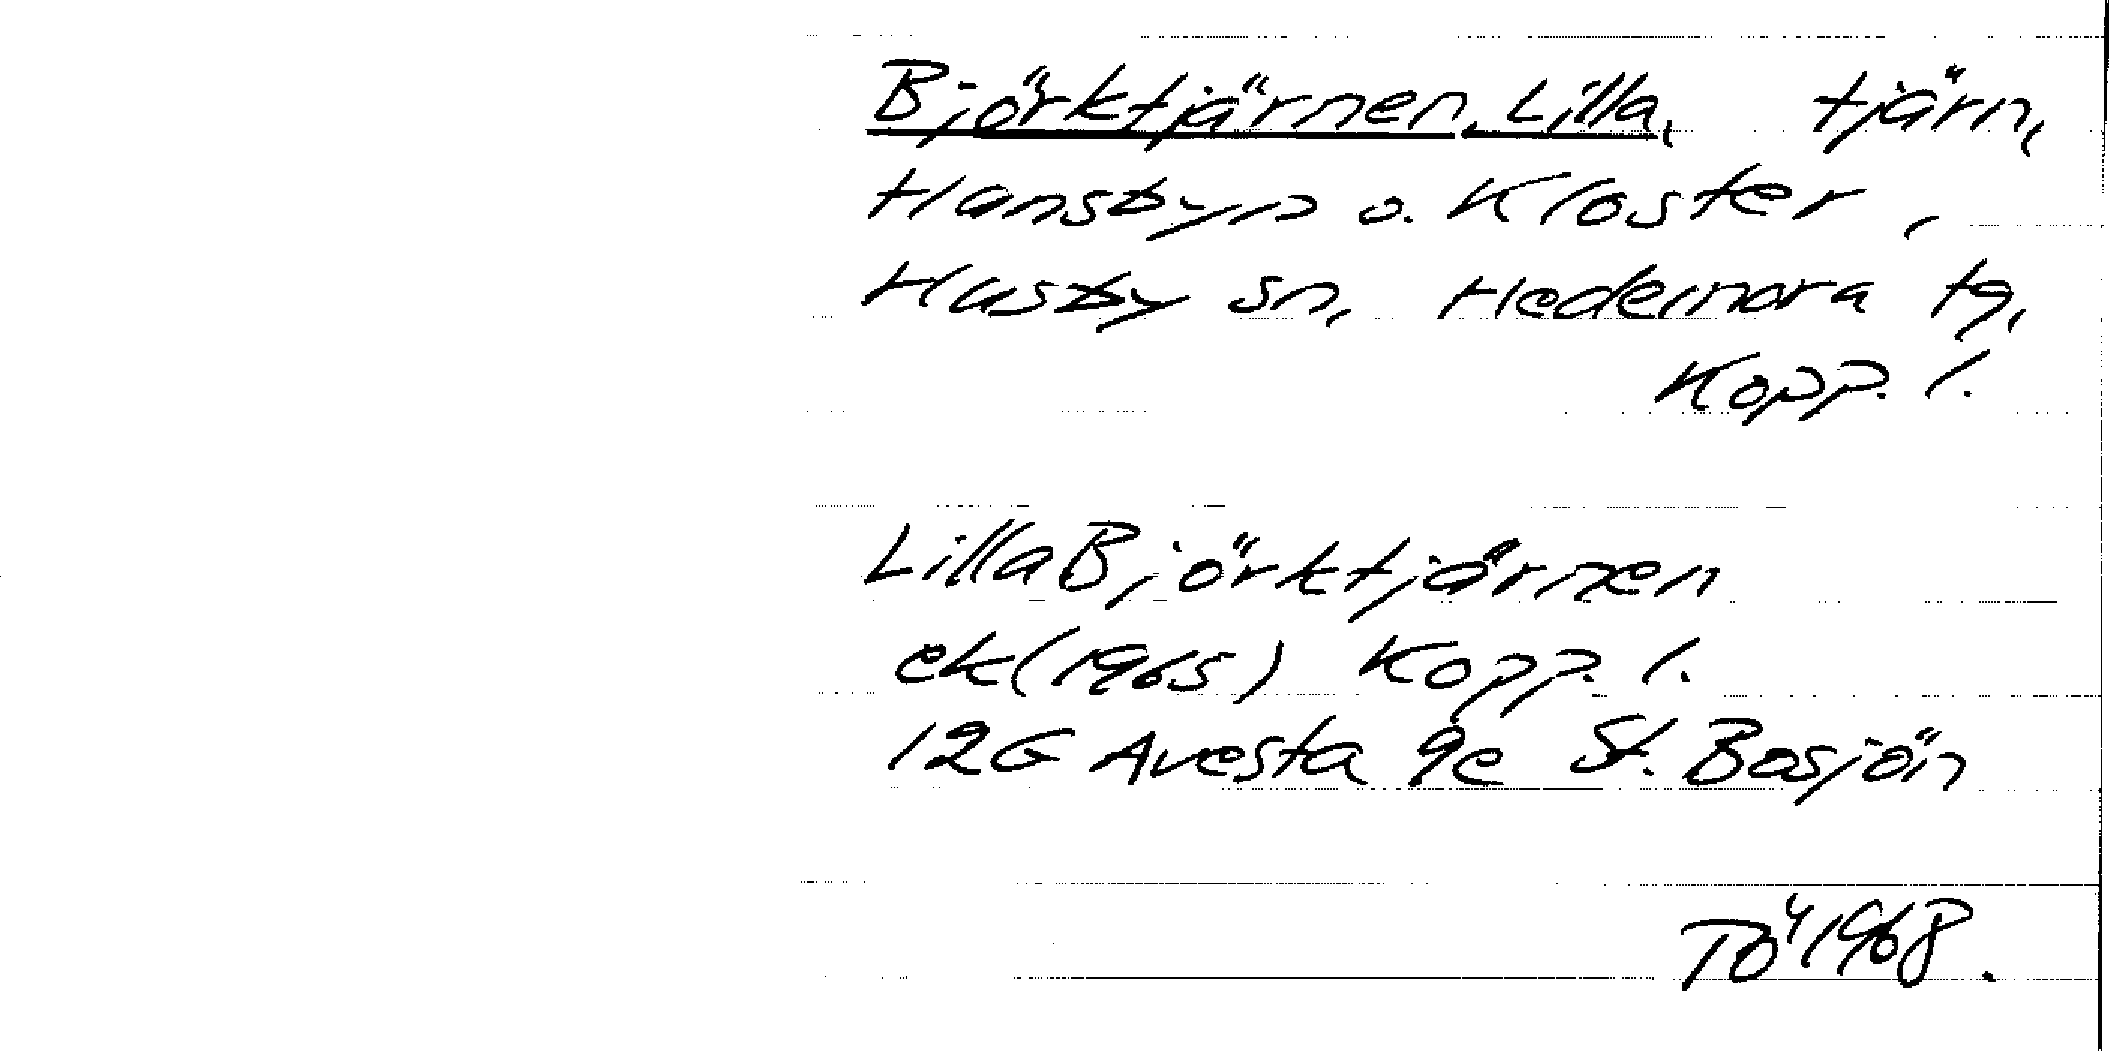 Björktjärnen, Lilla, tjärn,
Hansbyn o. Kloster,
Husby sn, Hedemora tg,
Kopp. l.
Lilla Björktjärnen
ek (1965) Kopp. l.
12G Avesta 9e St. Bosjön
TÖ 1968.